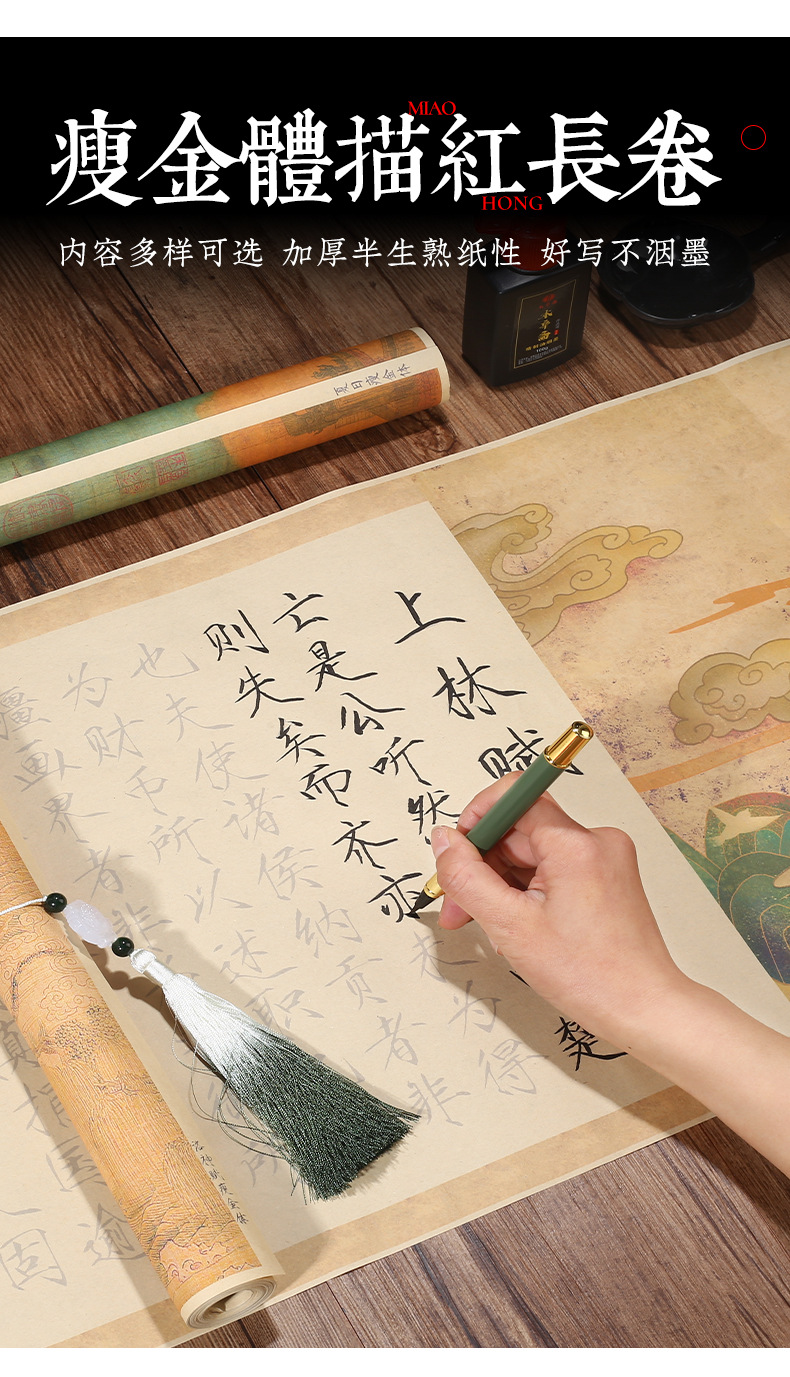 MIAO
瘦金體描紅長卷
HONG
内容多样可选 加厚半生熟纸性 好写不洇墨
夏日瘦金体
上林赋
亡是公听然
楚
则失矣而齐亦未为得
也夫使诸侯纳贡者非
为财币所以述职
疆画界者非
捐国逾
固
上林赋瘦金体